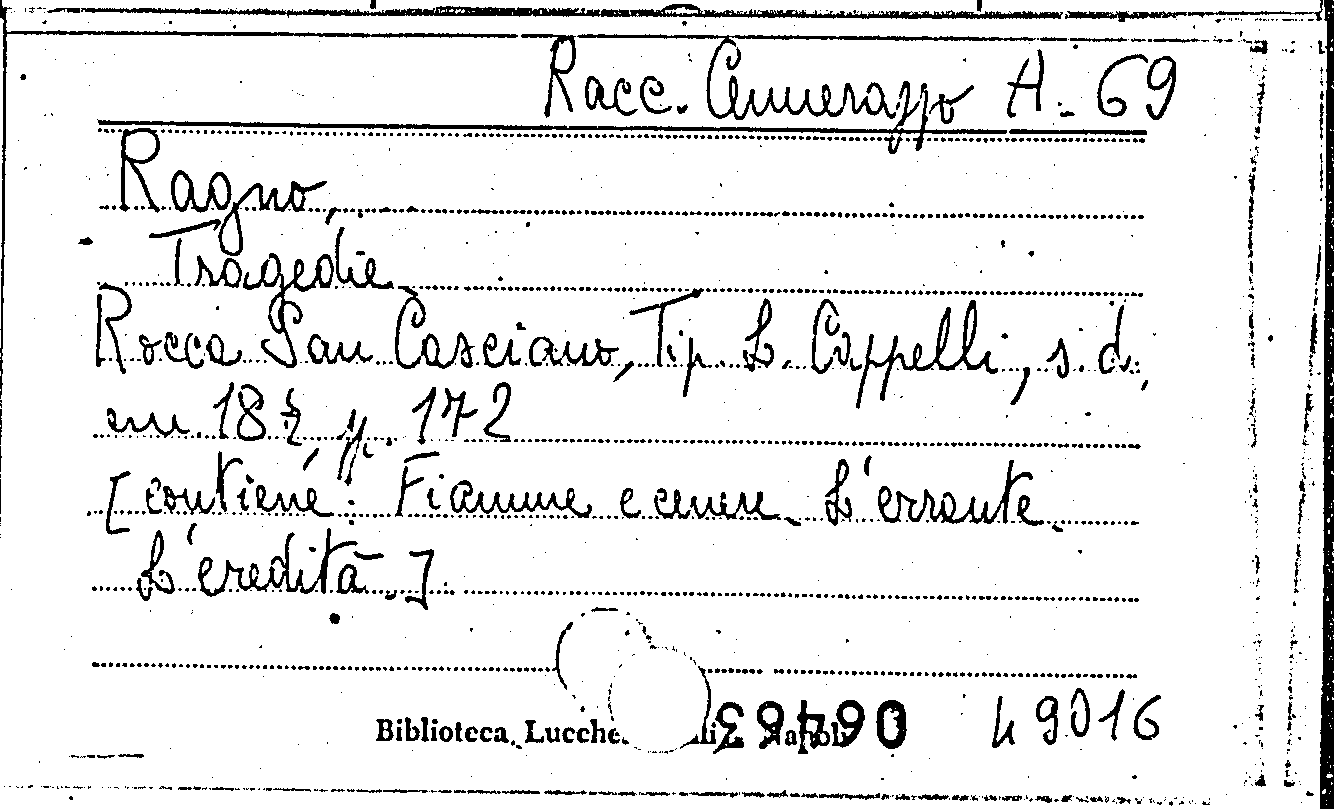 Racc. Cennerazzo A. 69
Ragno,
Tragedie
Rocca San Casciano, Tip. L. Cappelli, s. d.,
cm. 18½, p. 172
[contiene: Fiamme e cenere. L'errante.
L'eredità.]
Biblioteca Lucche
064463
49016